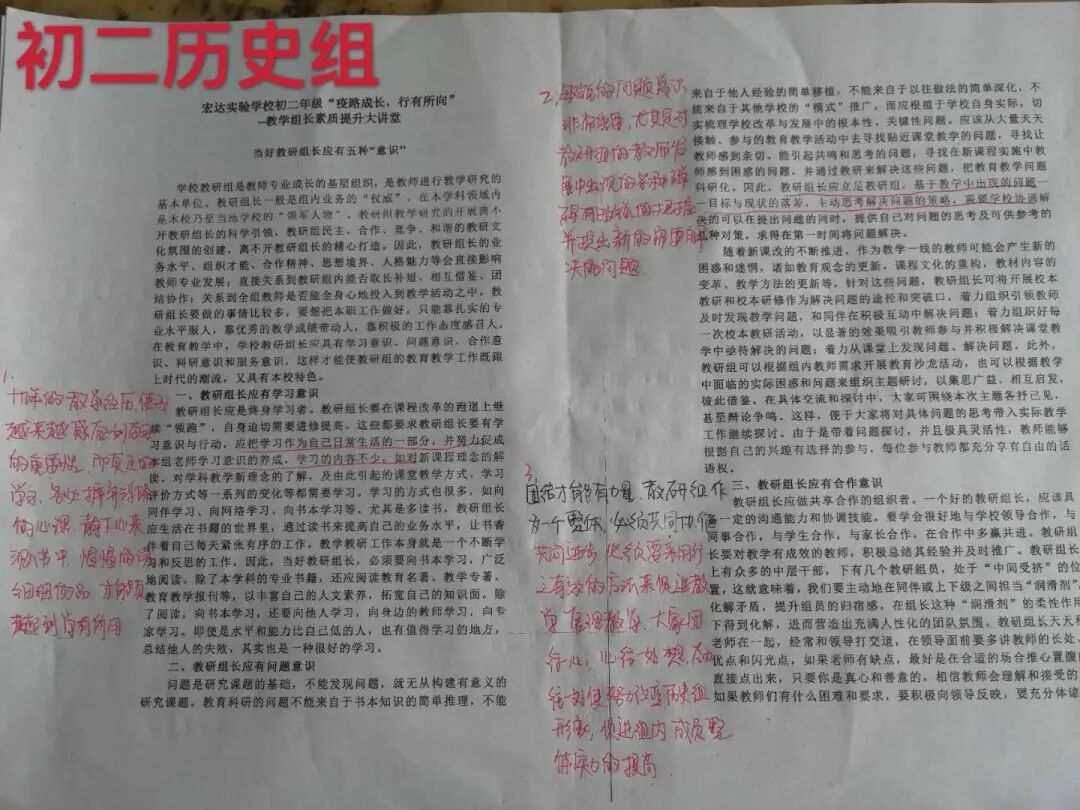 初二历史组
宏达实验学校初二年级“疫路成长，行有所向”
--教学组长素质提升大讲堂
当好教研组长应有五种“意识”
学校教研组是教师专业成长的基层组织，是教师进行教学研究的
基本单位。教研组长一般是组内业务的“权威”，在本学科领域内
是本校乃至当地学校的“领军人物”。教研组教学研究的开展离不
开教研组长的科学引领，教研组民主、合作、竞争、和谐的教研文
化氛围的创建，离不开教研组长的精心打造。因此，教研组长的业
务水平、组织才能、合作精神、思想境界、人格魅力等会直接影响
教师专业发展；直接关系到教研组内能否取长补短、相互借鉴、团
结协作；关系到全组教师是否能全身心地投入到教学活动之中。教
研组长要做的事情比较多，要想把本职工作做好，只能靠扎实的专
业水平服人，靠优秀的教学成绩带动人，靠积极的工作态度感召人。
在教育教学中，学校教研组长应具有学习意识、问题意识、合作意
识、科研意识和服务意识，这样才能使教研组的教育教学工作既跟
上时代的潮流，又具有本校特色。
一、教研组长应有学习意识
教研组长应是终身学习者。教研组长要在课程改革的跑道上继
续“领跑”，自身迫切需要进修提高。这些都要求教研组长要有学
习意识与行动，应把学习作为自己日常生活的一部分，并努力促成
本组老师学习意识的养成，学习的内容不少，如对新课程理念的解
读、对学科教学新理念的了解，及由此引起的课堂教学方式、学习
评价方式等一系列的变化等都需要学习。学习的方式也很多，如向
同伴学习、向网络学习、向书本学习等。尤其是多读书，教研组长
应生活在书籍的世界里，通过读书来提高自己的业务水平，让书香
伴着自己每天紧张有序的工作。教学教研工作本身就是一个不断学
习和反思的工作。因此，当好教研组长，必须要向书本学习，广泛
地阅读。除了本学科的专业书籍，还应阅读教育名著、教学专著、
教育教学报刊等，以丰富自己的人文素养，拓宽自己的知识面。除
了阅读，向书本学习，还要向他人学习，向身边的教师学习，向专
家学习。即使是水平和能力比自己低的人，也有值得学习的地方，
总结他人的失败，其实也是一种很好的学习。
二、教研组长应有问题意识
问题是研究课题的基础，不能发现问题，就无从构建有意义的
研究课题。教育科研的问题不能来自于书本知识的简单推理，不能
1.
十几年的教学经历，使我
越来越感应到学习
的重要性，
的心课，静下心来
2、敏锐的问题意识
非常重要，尤其是对
教研组的教师发
展中出现的各种障
并提出新的
决的问题
3、
团结才能有力量，教研组作
为一个整体，必须共同协作
共同进步，
大家团
形象，促进组内成员整
体实力的提高
来自于他人经验的简单移植，不能来自于以往做法的简单深化，不
能来自于其他学校的“模式”推广，而应根植于学校自身实际，切
实梳理学校改革与发展中的根本性、关键性问题。应该从大量天天
接触、参与的教育教学活动中去寻找贴近课堂教学的问题，寻找让
教师感到亲切、能引起共鸣和思考的问题，寻找在新课程实施中教
师感到困惑的问题，并通过教研来解决这些问题，把教育教学问题
科研化。因此，教研组长应立足教研组，基于教学中出现的问题—
—目标与现状的落差，主动思考解决问题的策略，需要学校协调解
决的可以在提出问题的同时，提供自己对问题的思考及可供参考的
几种对策，求得在第一时间将问题解决。
随着新课改的不断推进，作为教学一线的教师可能会产生新的
困惑和迷惘，诸如教育观念的更新，课程文化的重构，教材内容的
变革、教学方法的更新等，针对这些问题，教研组长可将开展校本
教研和校本研修作为解决问题的途径和突破口，着力组织引领教师
及时发现教学问题，和同伴在积极互动中解决问题；着力组织好每
一次校本教研活动，以显著的效果吸引教师参与并积极解决课堂教
学中亟待解决的问题；着力从课堂上发现问题、解决问题。此外，
教研组可以根据组内教师需求开展教育沙龙活动，也可以根据教学
中面临的实际困惑和问题来组织主题研讨，以集思广益、相互启发，
彼此借鉴。在具体交流和探讨中，大家可围绕本次主题各抒己见，
甚至辩论争鸣。这样，便于大家将对具体问题的思考带入实际教学
工作继续探讨。由于是带着问题探讨，并且极具灵活性，教师能够
根据自己的兴趣有选择的参与，每位参与教师都充分享有自由的话
语权。
三、教研组长应有合作意识
教研组长应做共享合作的组织者。一个好的教研组长，应该具
一定的沟通能力和协调技能。要学会很好地与学校领导合作，与
同事合作，与学生合作，与家长合作，在合作中多赢共进。教研组
长要对教学有成效的教师，积极总结其经验并及时推广。教研组长
上有众多的中层干部，下有几个教研组员，处于“中间受挤”的位
置，这就意味着，我们要主动地在同伴或上下级之间担当“润滑剂”
化解矛盾，提升组员的归宿感，在组长这种“润滑剂”的柔性作用
下得到化解，进而营造出充满人性化的团队氛围。教研组长天天和
老师在一起，经常和领导打交道，在领导面前要多讲教师的长处、
优点和闪光点，如果老师有缺点，最好是在合适的场合推心置腹的
直接点出来，只要你是真心和善意的，相信教师会理解和接受的
如果教师们有什么困难和要求，要积极向领导反映，要充分体谅